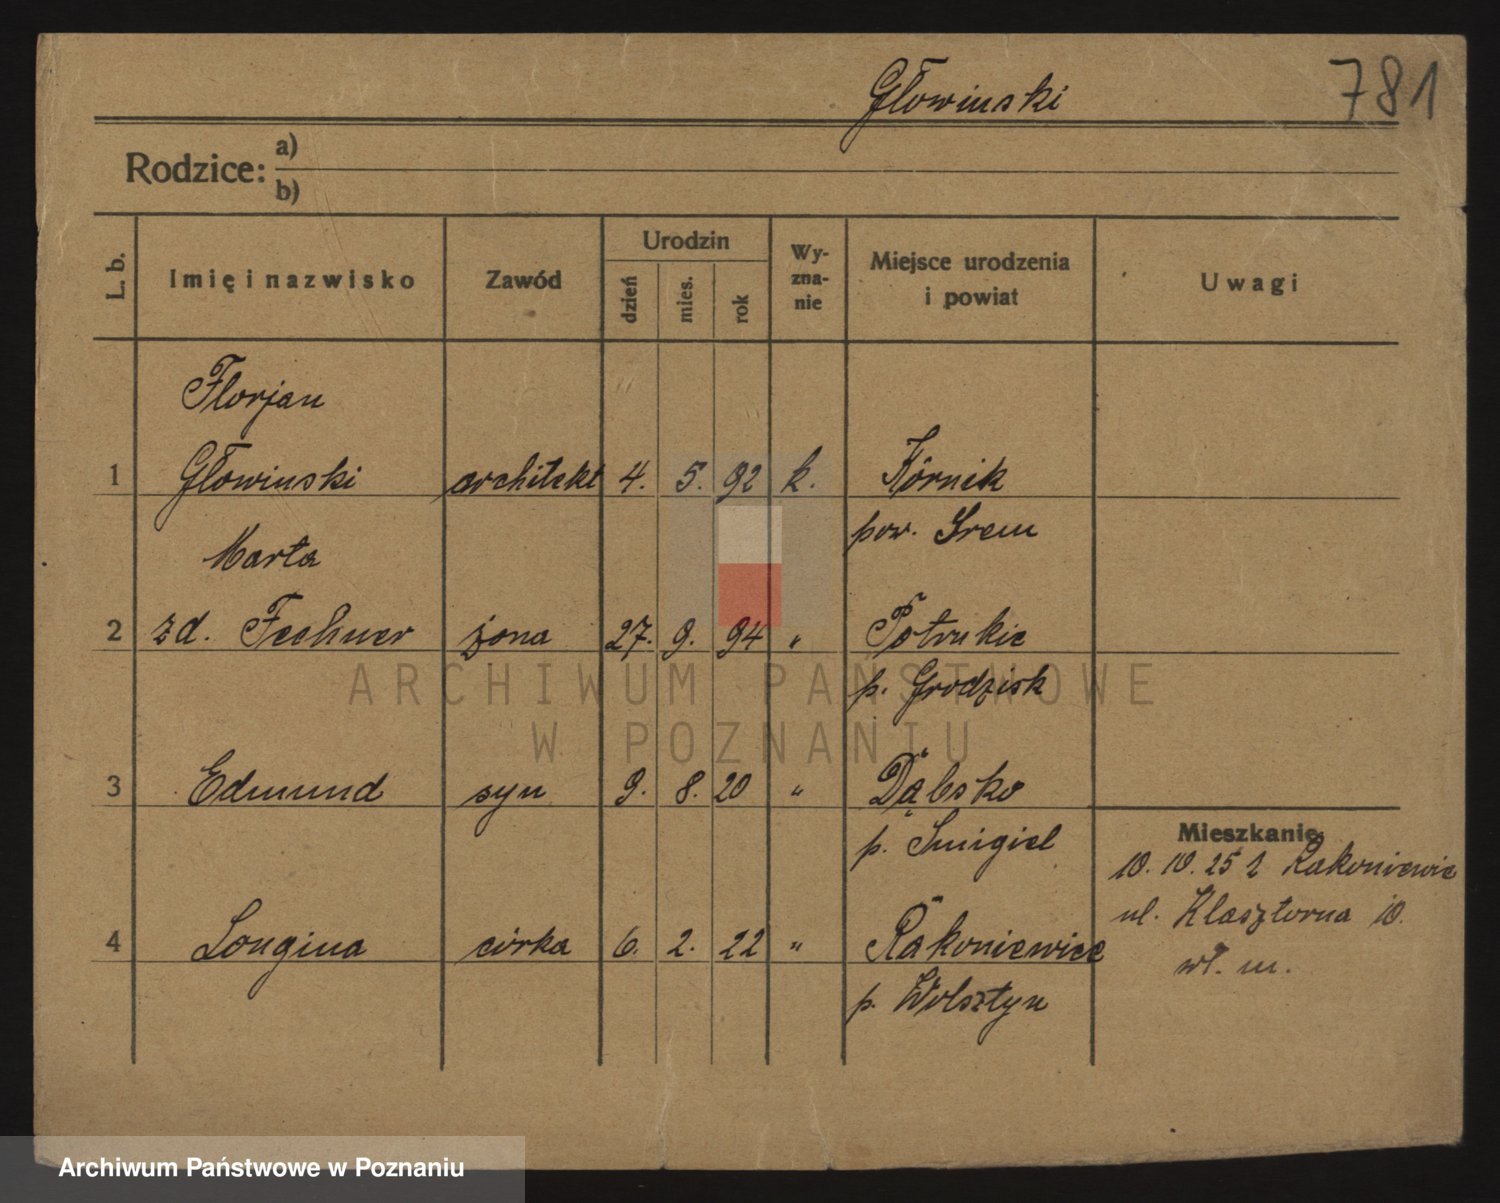 Głowinski 781
Rodzice: a)
b)
L. b. Imię i nazwisko Zawód Urodzin dzień mies. rok Wyznanie Miejsce urodzenia i powiat Uwagi
Florjan
1 Głowinski architekt 4. 5. 92 k. Kórnik
pow. Śrem
Marta
2 zd. Fechner żona 27. 9. 94 " Ptotrukie
p. Grodzisk
3 Edmund syn 9. 8. 20 " Dąbsko
p. Smigiel
Mieszkanie
10. 10. 25 z Rakoniewic
ul. Klasztorna 10.
wł. m.
4 Longina córka 6. 2. 22 " Rakoniewice
p. Wolsztyn
ARCHIWUM PAŃSTWOWE
W POZNANIU
Archiwum Państwowe w Poznaniu